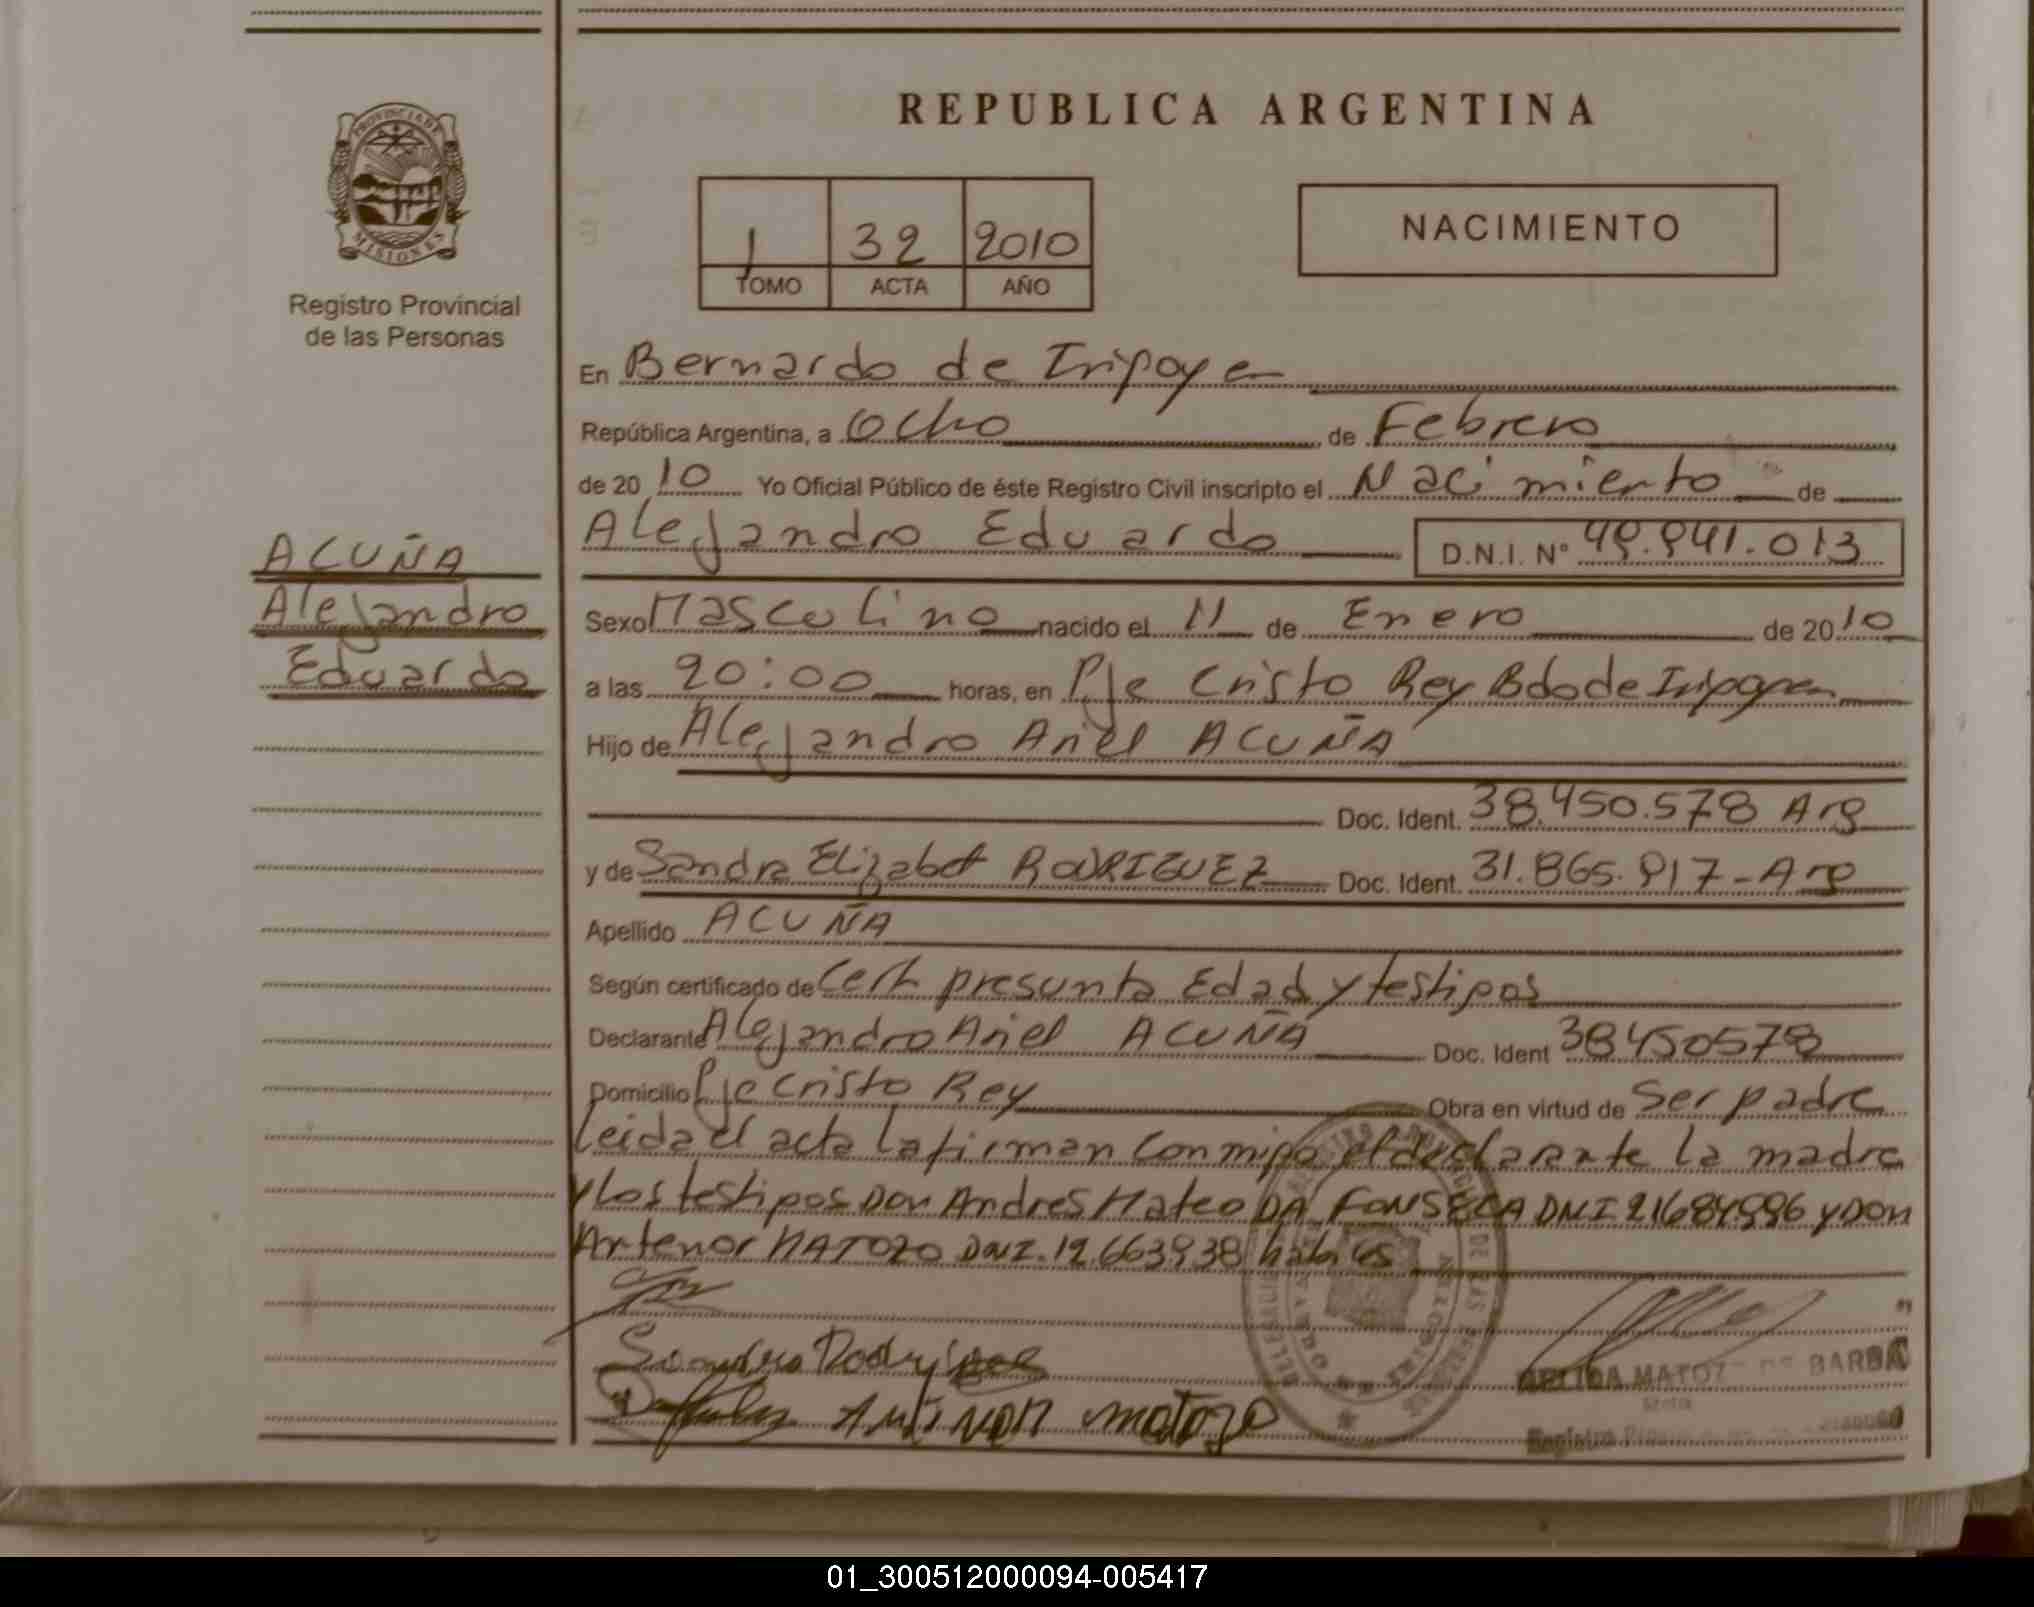 PROVINCIA DE
MISIONES
Registro Provincial
de las Personas
REPUBLICA ARGENTINA
1 32 2010
TOMO ACTA AÑO
NACIMIENTO
En Bernardo de Iripoyen
República Argentina, a Ocho de Febrero
de 20 10 Yo Oficial Público de éste Registro Civil inscripto el Nacimiento de
Alejandro Eduardo D.N.I. Nº
ACUÑA
Alejandro
Eduardo
Sexo Masculino nacido el 11 de Enero de 20 10
a las 20:00 horas, en Pje Cristo Rey Bdo de Iripoyen
Hijo de Alejandro Ariel ACUÑA
Doc. Ident. 38.450.578 Arg
y de Sandra Elizabet RODRIGUEZ Doc. Ident. 31.865.917-Arg
Apellido ACUÑA
Según certificado de Cert presunta Edad y testipos
Declarante Alejandro Ariel ACUÑA Doc. Ident 38450578
Domicilio Pje Cristo Rey Obra en virtud de Ser padre
leida el acta la firman Conmipo el declarante la madre
y los testipos Don Andres Mateo DA FONSECA DNI y Don
Artenor MATOZO DNI. 12.663.938 habiles
Sandra Rodriguez
matozo
MATOZ DE BARBA
Registro
01_300512000094-005417